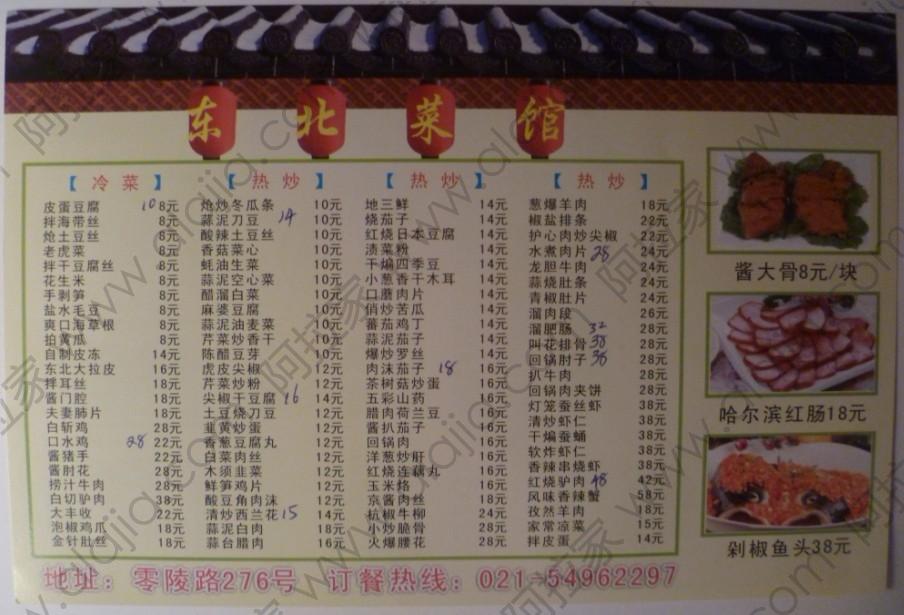 东北菜馆
【冷菜】
皮蛋豆腐 10 8元
拌海带丝 8元
炝土豆丝 8元
老虎菜 8元
拌干豆腐丝 8元
花生米 8元
手剥笋 8元
盐水毛豆 8元
爽口海草根 8元
拍黄瓜 8元
自制皮冻 14元
东北大拉皮 16元
拌耳丝 18元
酱门腔 18元
夫妻肺片 18元
白斩鸡 28元
口水鸡 28 22元
酱猪手 22元
酱肘花 28元
捞汁牛肉 28元
白切驴肉 38元
大丰收 22元
泡椒鸡爪 18元
金针肚丝 18元
【热炒】
炝炒冬瓜条 10元
蒜泥刀豆 14 10元
酸辣土豆丝 10元
香菇菜心 10元
蚝油生菜 10元
蒜泥空心菜 10元
醋溜白菜 10元
麻婆豆腐 10元
蒜泥油麦菜 10元
芹菜炒香干 10元
陈醋豆芽 10元
虎皮尖椒 12元
芹菜炒粉 12元
尖椒干豆腐 16 14元
土豆烧刀豆 12元
韭黄炒蛋 12元
香葱豆腐丸 12元
白菜肉丝 12元
木须韭菜 12元
鲜笋鸡片 12元
酸豆角肉沫 12元
清炒西兰花 15 14元
蒜泥白肉 18元
蒜台腊肉 16元
【热炒】
地三鲜 14元
烧茄子 14元
红烧日本豆腐 14元
渍菜粉 14元
干煸四季豆 14元
小葱香干木耳 14元
口蘑肉片 14元
俏炒苦瓜 14元
蕃茄鸡丁 14元
蒜泥茄子 14元
爆炒罗丝 14元
肉沫茄子 18 16元
茶树菇炒蛋 16元
五彩山药 16元
腊肉荷兰豆 16元
酱扒茄子 16元
回锅肉 16元
洋葱炒肝 16元
红烧连藕丸 16元
玉米烙 16元
京酱肉丝 18元
杭椒牛柳 24元
小炒脆骨 28元
火爆腰花 28元
【热炒】
葱爆羊肉 18元
椒盐排条 22元
护心肉炒尖椒 22元
水煮肉片 28 24元
龙胆牛肉 24元
蒜烧肚条 24元
青椒肚片 24元
溜肉段 26元
溜肥肠 32 28元
叫花排骨 38 28元
回锅肘子 36 28元
扒牛肉 28元
回锅肉夹饼 28元
灯笼蚕丝虾 38元
清炒虾仁 38元
干煸蚕蛹 38元
软炸虾仁 38元
香辣串烧虾 38元
红烧驴肉 48 42元
风味香辣蟹 58元
孜然羊肉 18元
家常凉菜 15元
拌皮蛋 14元
酱大骨8元/块
哈尔滨红肠18元
剁椒鱼头38元
地址：零陵路276号 订餐热线：021-54962297
阿拉家 www.alajia.com